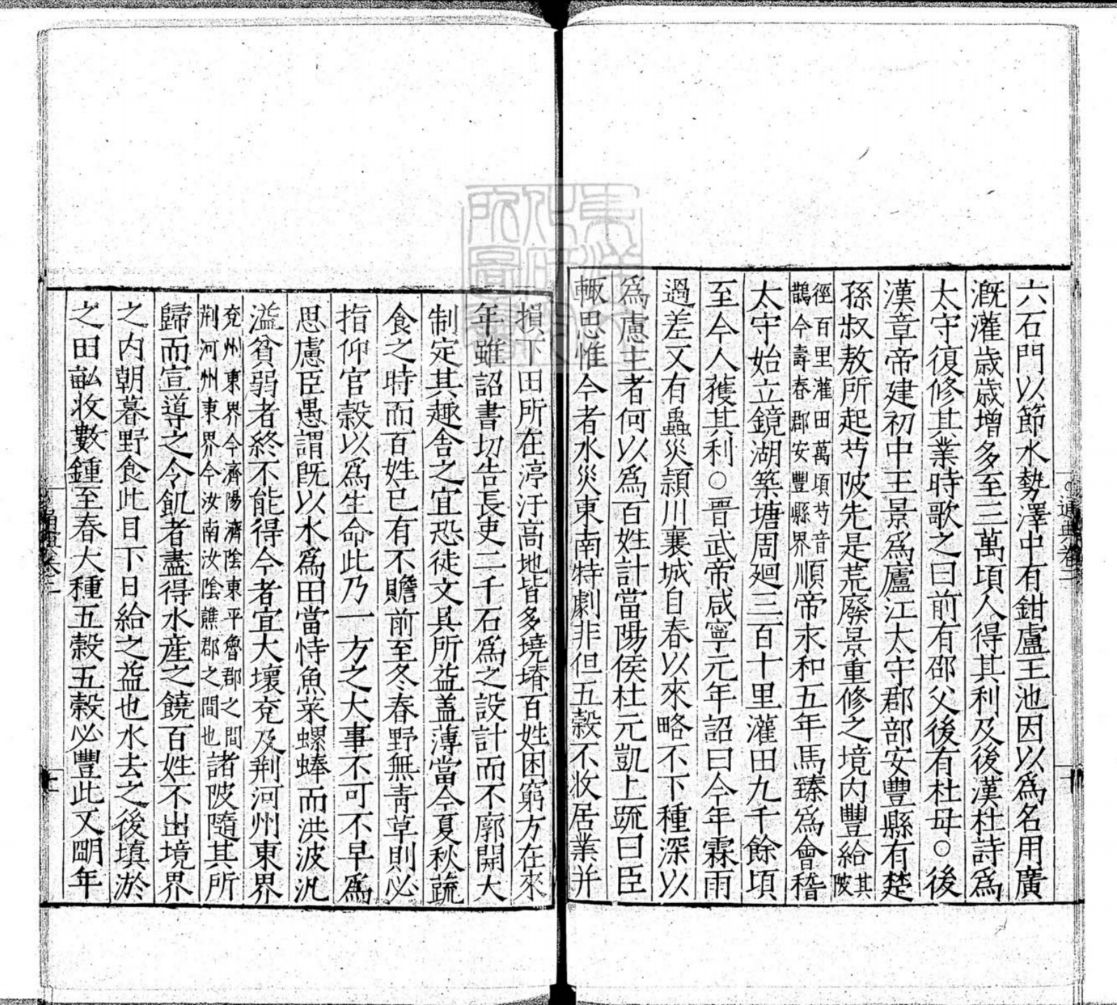 六石門以節水勢澤中有鉗盧王池因以爲名用廣
溉灌歲歲增多至三萬頃人得其利及後漢杜詩爲
太守復修其業時歌之曰前有邵父後有杜母○後
漢章帝建初中王景爲廬江太守郡部安豐縣有楚
孫叔敖所起芍陂先是荒廢景重修之境内豐給陂其
徑百里灌田萬頃芍音
鵲今壽春郡安豐縣界順帝永和五年馬臻爲會稽
太守始立鏡湖築塘周廻三百十里灌田九千餘頃
至今人獲其利○晋武帝咸寧元年詔曰今年霖雨
過差又有蟲災潁川襄城自春以來略不下種深以
爲慮主者何以爲百姓計當陽侯杜元凱上疏曰臣
輙思惟今者水災東南特劇非但五穀不收居業并
損下田所在渟汙高地皆多墝塉百姓困窮方在來
年雖詔書切告長吏二千石爲之設計而不廓開大
制定其趣舍之宜恐徒文具所益盖薄當今夏秋蔬
食之時而百姓已有不贍前至冬春野無青草則必
指仰官穀以爲生命此乃一方之大事不可不早爲
思慮臣愚謂旣以水爲田當恃魚菜螺蜯而洪波汎
濫貧弱者終不能得今者宜大壞兖及荆河州東界
兖州東界今濟陽濟陰東平魯郡之間
荆河州東界今汝南汝陰譙郡之間也諸陂隨其所
歸而宣導之令飢者盡得水産之饒百姓不出境界
之内朝暮野食此目下日給之益也水去之後填淤
之田畝收數鍾至春大種五穀五穀必豐此又明年